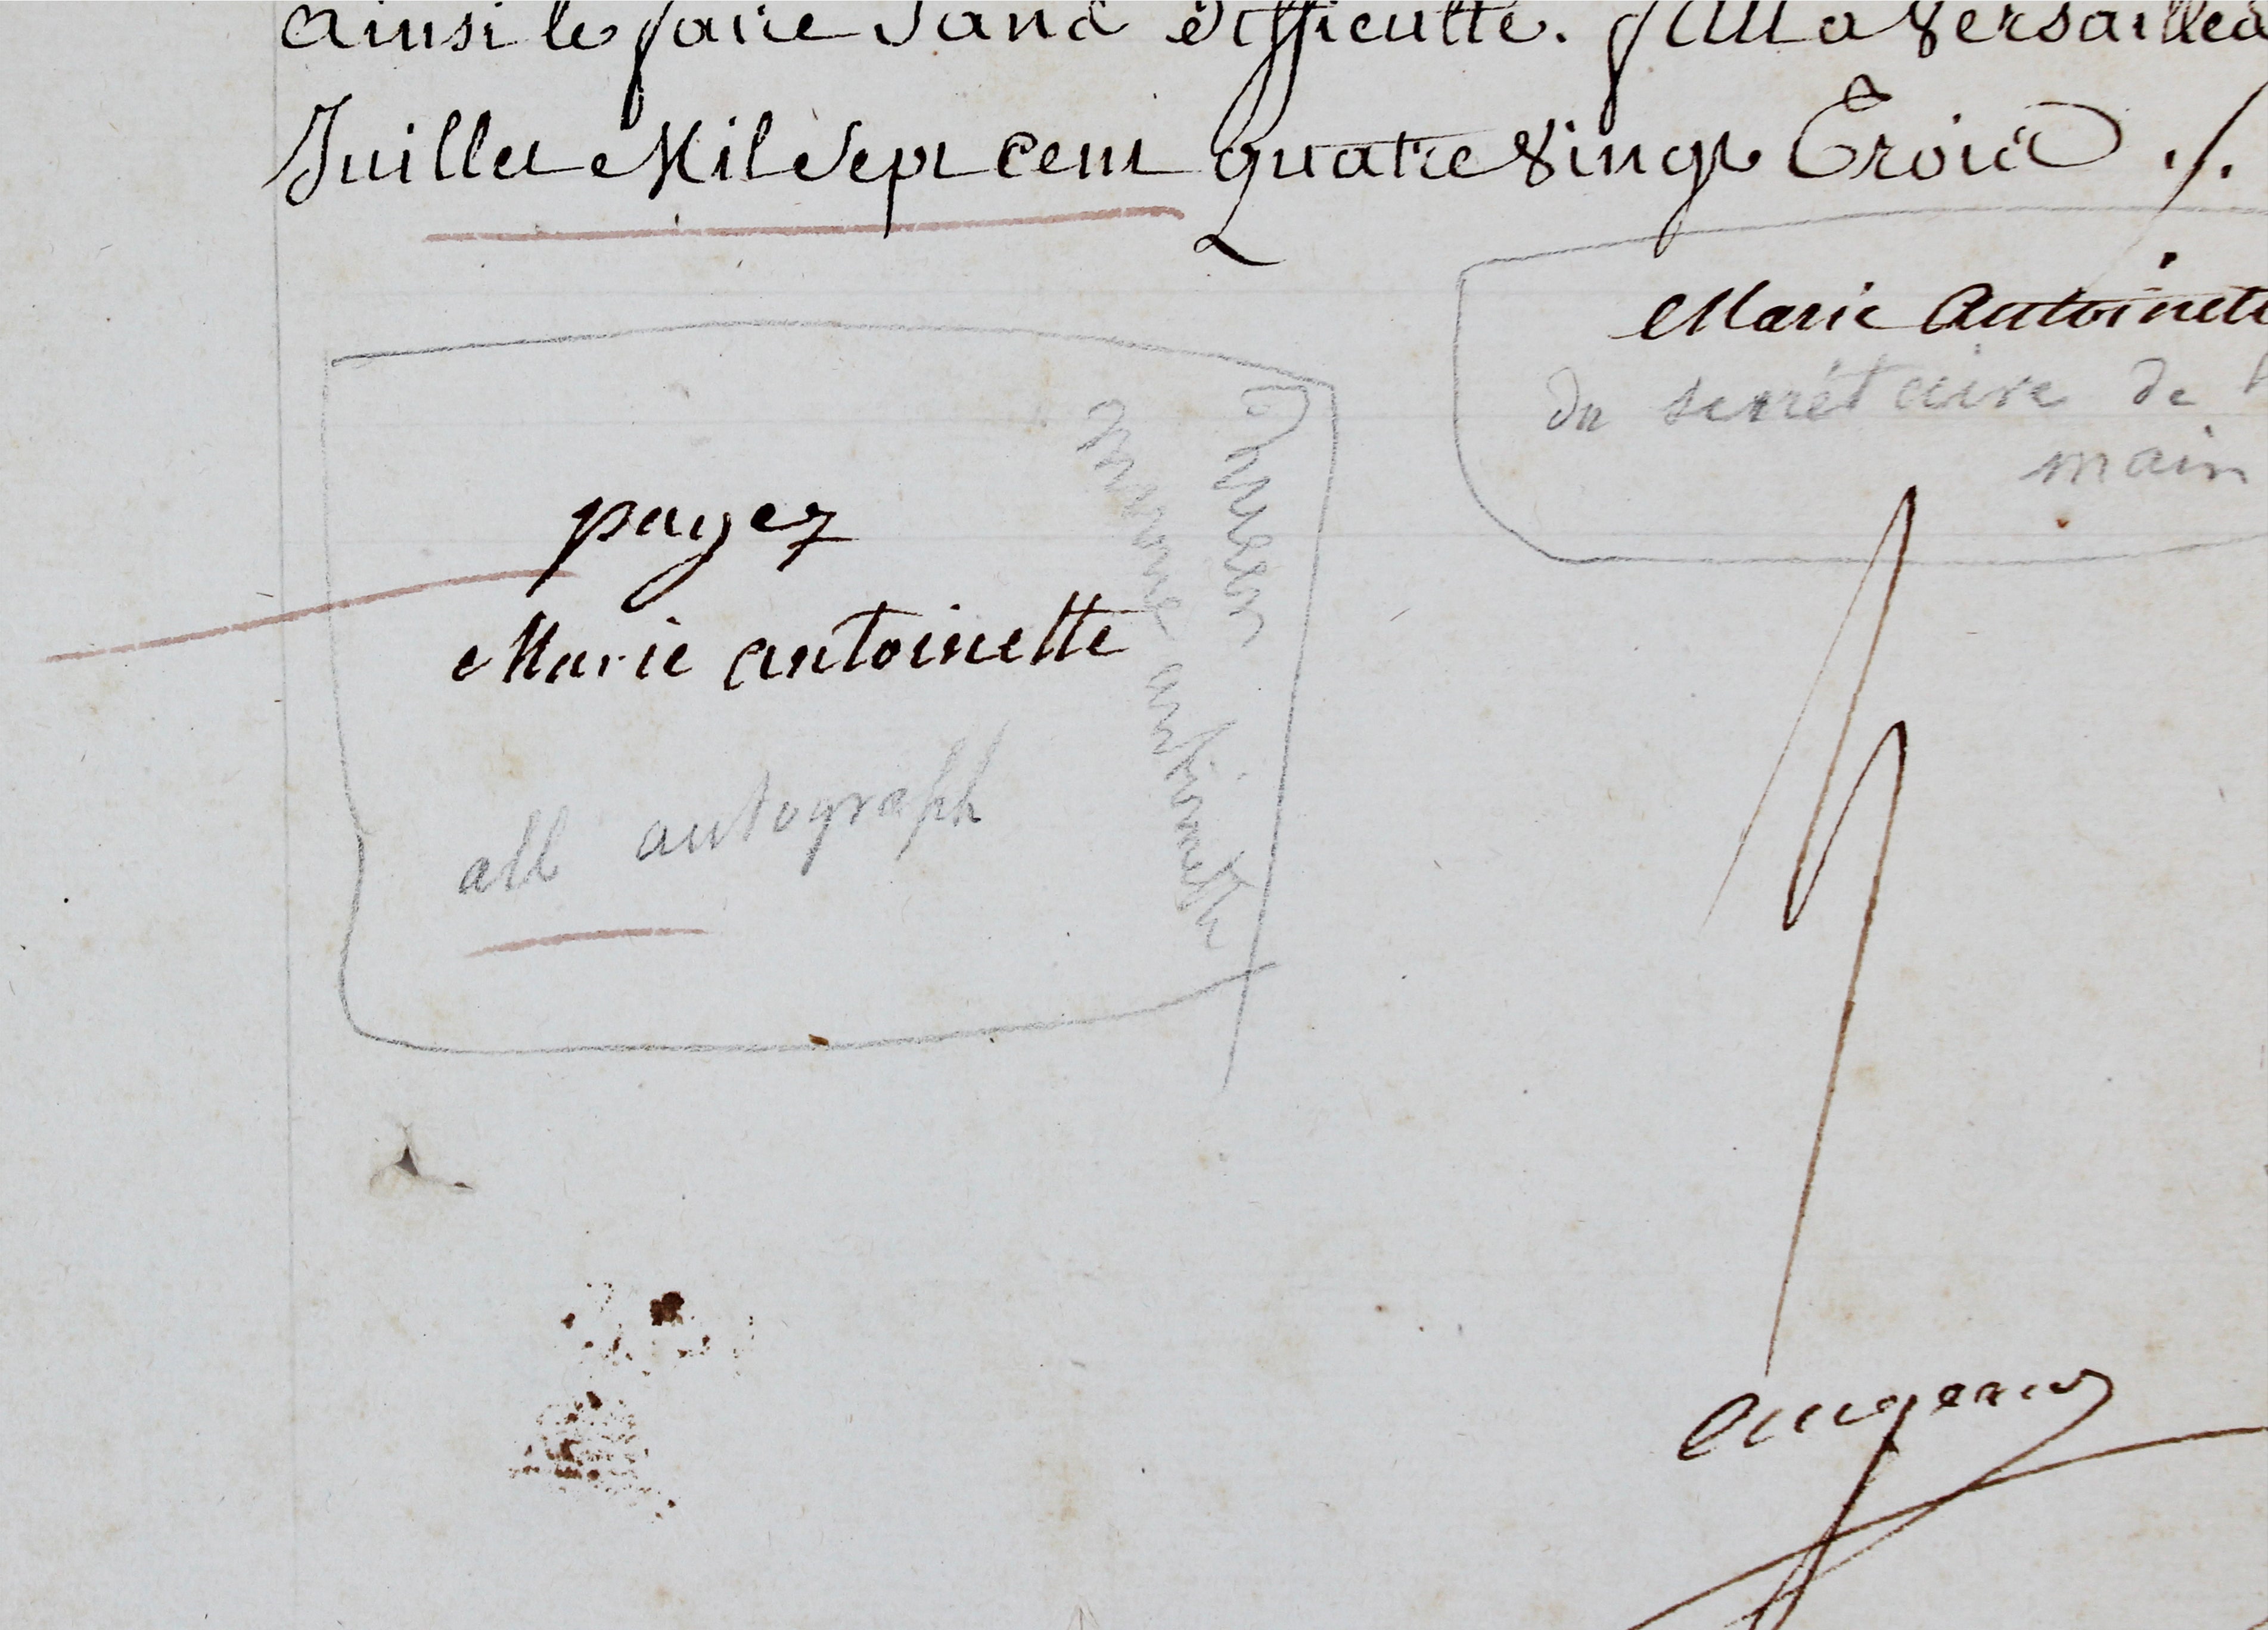 ainsi le faire Sans difficulté. fait a Versailles
Juillet Mil Sept cent quatre Vingt Trois ./.
Marie Antoinett
du secrétaire de
main
payez
Marie antoinette
all autograph
Queen
Marie antionette
augeard